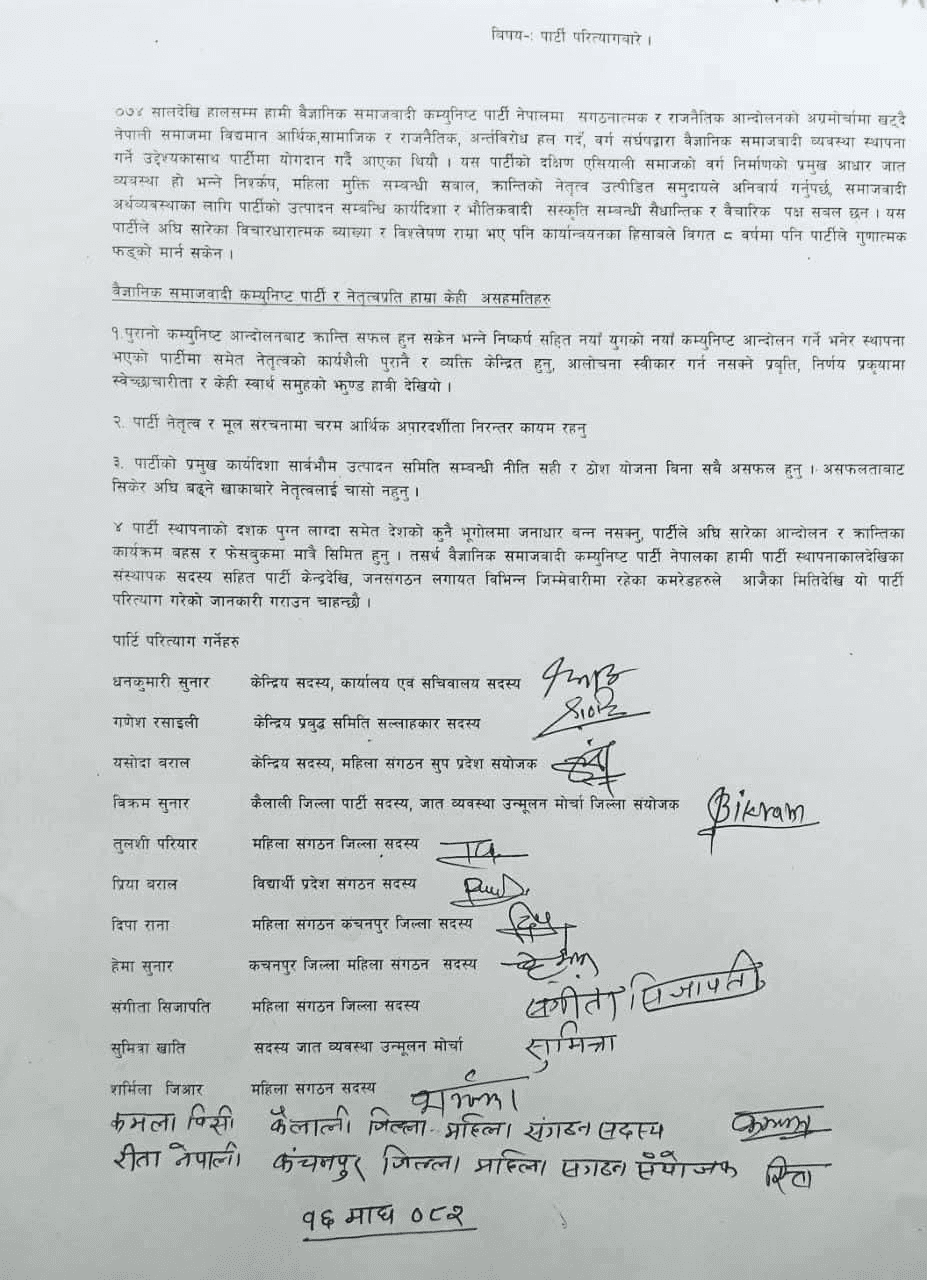 विषय-: पार्टी परित्यागबारे ।
०७४ सालदेखि हालसम्म हामी वैज्ञानिक समाजवादी कम्युनिष्ट पार्टी नेपालमा सगठनात्मक र राजनैतिक आन्दोलनको अग्रमोर्चामा खट्दै
नेपाली समाजमा विद्यमान आर्थिक,सामाजिक र राजनैतिक, अर्न्तविरोध हल गर्दै, वर्ग सर्घषद्वारा वैज्ञानिक समाजवादी व्यवस्था स्थापना
गर्ने उद्देश्यकासाथ पार्टीमा योगदान गर्दै आएका थियौ । यस पार्टीको दक्षिण एसियाली समाजको वर्ग निर्माणको प्रमुख आधार जात
व्यवस्था हो भन्ने निर्श्कष, महिला मुक्ति सम्बन्धी सवाल, क्रान्तिको नेतृत्व उत्पीडित समुदायले अनिवार्य गर्नुपर्छ, समाजवादी
अर्थव्यवस्थाका लागि पार्टीको उत्पादन सम्बन्धि कार्यदिशा र भौतिकवादी संस्कृति सम्बन्धी सैधान्तिक र वैचारिक पक्ष सबल छन । यस
पार्टीले अघि सारेका विचारधारात्मक ब्याख्या र विश्लेषण राम्रा भए पनि कार्यान्वयनका हिसाबले विगत ८ वर्षमा पनि पार्टीले गुणात्मक
फड्को मार्न सकेन ।
वैज्ञानिक समाजवादी कम्युनिष्ट पार्टी र नेतृत्वप्रति हाम्रा केही असहमतिहरु
१.पुरानो कम्युनिष्ट आन्दोलनबाट क्रान्ति सफल हुन सकेन भन्ने निष्कर्ष सहित नयाँ युगको नयाँ कम्युनिष्ट आन्दोलन गर्ने भनेर स्थापना
भएको पार्टीमा समेत नेतृत्वको कार्यशैली पुरानै र व्यक्ति केन्द्रित हुनु, आलोचना स्वीकार गर्न नसक्ने प्रबृत्ति, निर्णय प्रकृयामा
स्वेच्छाचारीता र केही स्वार्थ समुहको झुण्ड हावी देखियो ।
२. पार्टी नेतृत्व र मूल संरचनामा चरम आर्थिक अपारदर्शीता निरन्तर कायम रहनु
३. पार्टीको प्रमुख कार्यदिशा सार्वभौम उत्पादन समिति सम्बन्धी नीति सही र ठोश योजना बिना सबै असफल हुनु । असफलताबाट
सिकेर अघि बढ्ने खाकाबारे नेतृत्वलाई चासो नहुनु ।
४ पार्टी स्थापनाको दशक पुग्न लाग्दा समेत देशको कुनै भूगोलमा जनाधार बन्न नसक्नु, पार्टीले अघि सारेका आन्दोलन र क्रान्तिका
कार्यक्रम बहस र फेसबुकमा मात्रै सिमित हुनु । तसर्थ वैज्ञानिक समाजवादी कम्युनिष्ट पार्टी नेपालका हामी पार्टी स्थापनाकालदेखिका
संस्थापक सदस्य सहित पार्टी केन्द्रदेखि, जनसंगठन लगायत विभिन्न जिम्मेवारीमा रहेका कमरेडहरुले आजैका मितिदेखि यो पार्टी
परित्याग गरेको जानकारी गराउन चाहन्छौ ।
पार्टि परित्याग गर्नेहरु
धनकुमारी सुनार केन्द्रिय सदस्य, कार्यालय एवं सचिवालय सदस्य
गणेश रसाइली केन्द्रिय प्रबुद्ध समिति सल्लाहकार सदस्य
यसोदा बराल केन्द्रिय सदस्य, महिला संगठन सुप प्रदेश सयोजक
विक्रम सुनार कैलाली जिल्ला पार्टी सदस्य, जात व्यवस्था उन्मूलन मोर्चा जिल्ला संयोजक Bikram
तुलशी परियार महिला सगठन जिल्ला सदस्य
प्रिया बराल विद्यार्थी प्रदेश संगठन सदस्य
दिपा राना महिला संगठन कंचनपुर जिल्ला सदस्य
हेमा सुनार कचनपुर जिल्ला महिला संगठन सदस्य
संगीता सिजापति महिला संगठन जिल्ला सदस्य संगीता सिजापती
सुमित्रा खाति सदस्य जात व्यवस्था उन्मूलन मोर्चा सुमित्रा
शर्मिला जिआर महिला सगठन सदस्य
कमला विसी कैलाली जिल्ला महिला संगठन सदस्य कमला
रीता नेपाली कंचनपुर जिल्ला महिला सगठन संयोजक रिता
१६ माघ ०८२